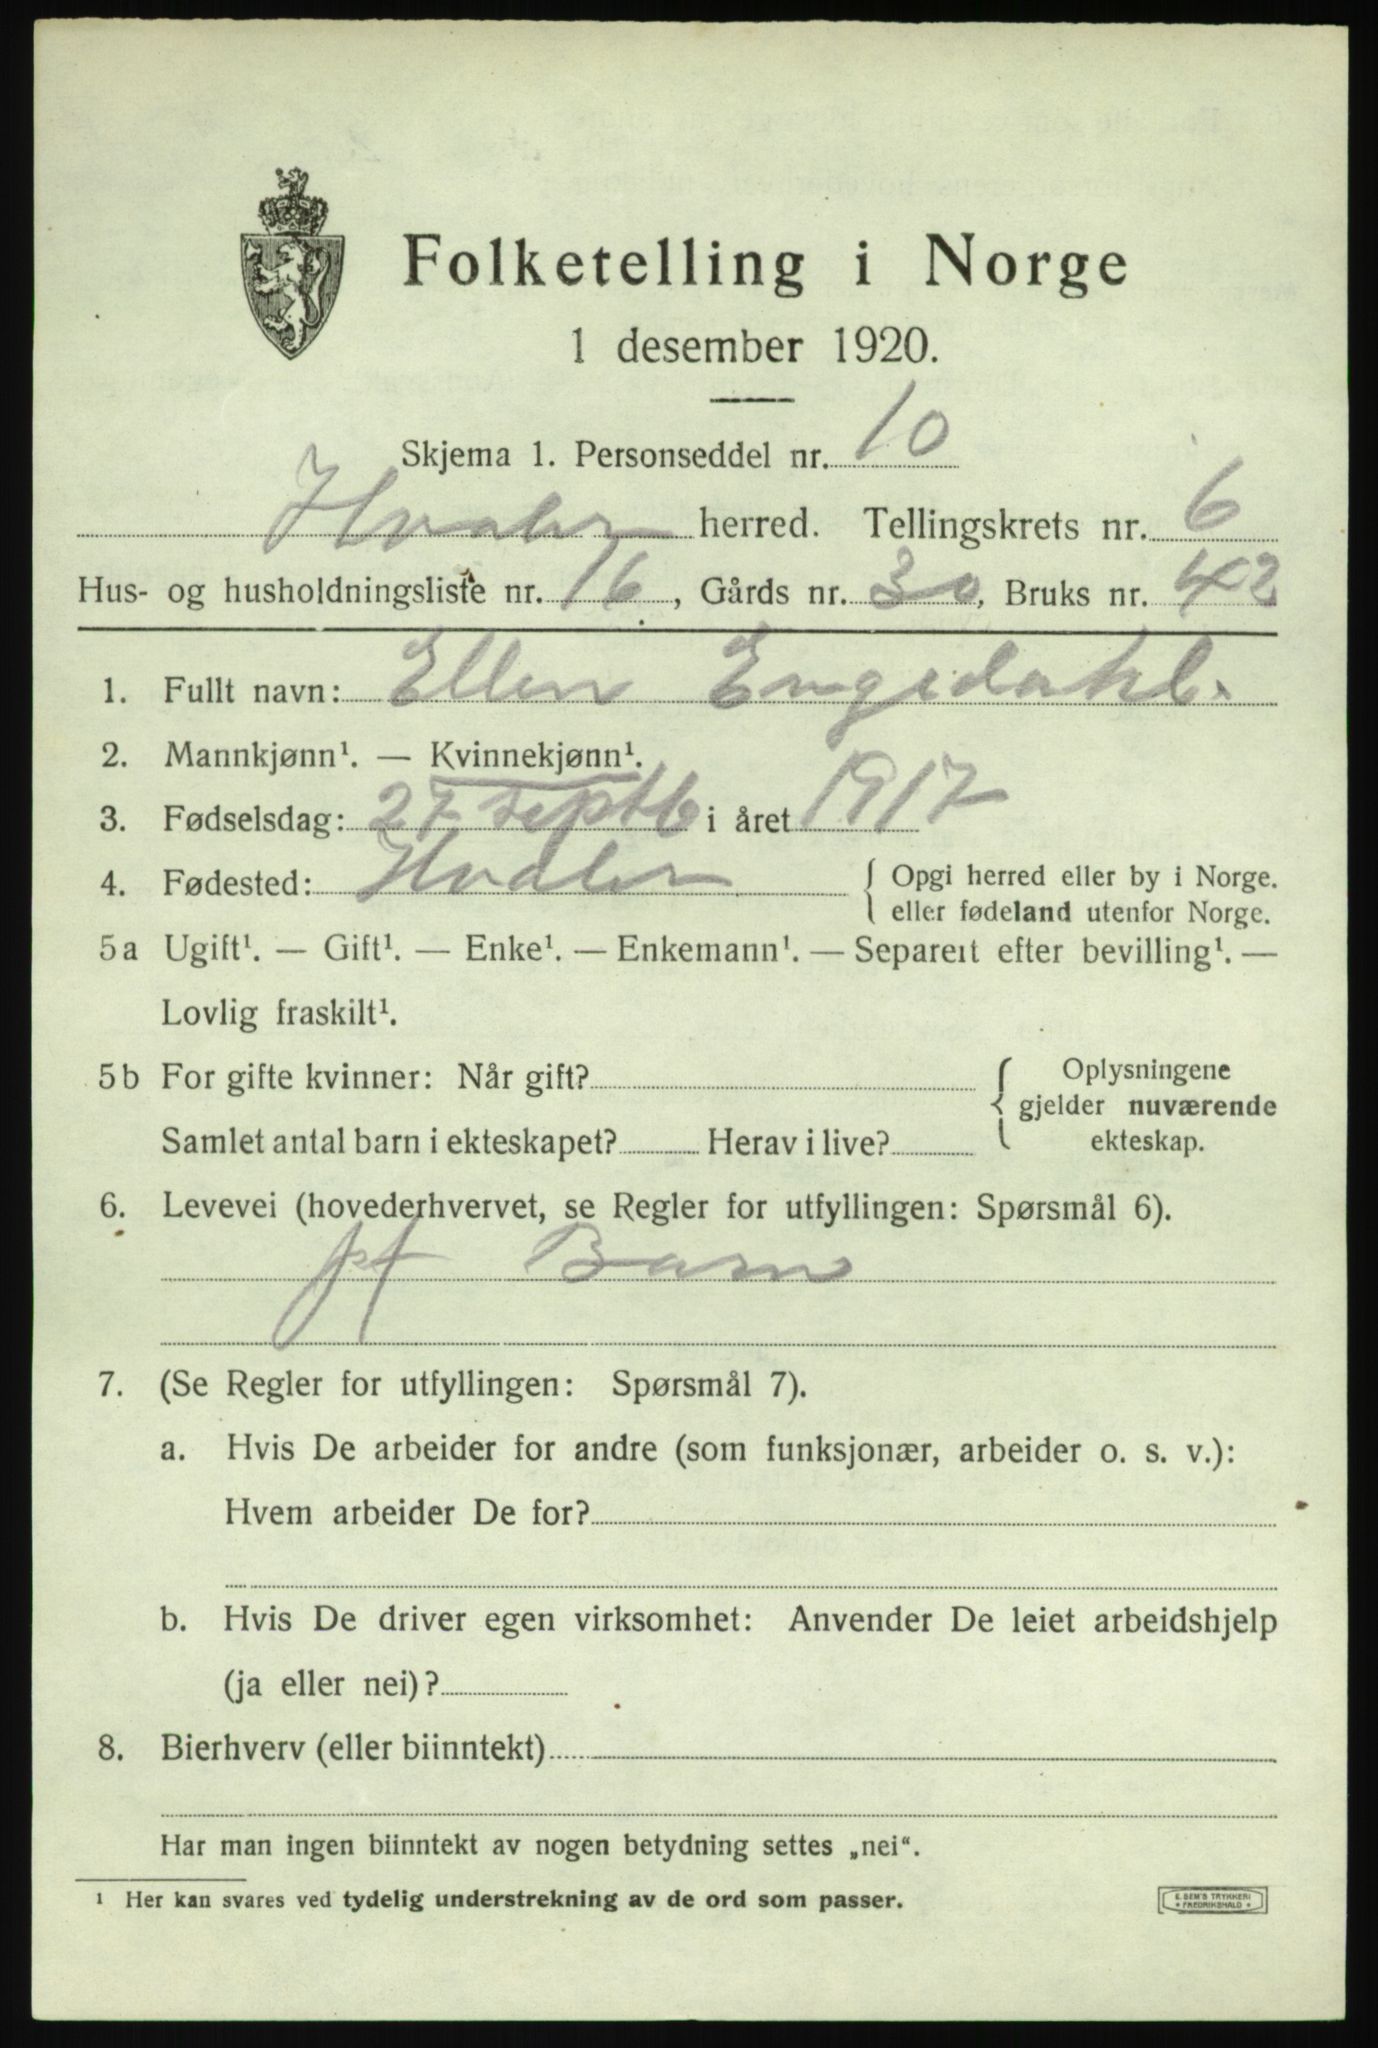 Folketelling i Norge
1 desember 1920.
Skjema 1. Personseddel nr. 10
Hvaler herred. Tellingskrets nr. 6
Hus- og husholdningsliste nr. 16, Gårds nr. 30, Bruks nr. 42
1. Fullt navn: Ellen Engedahl.
2. Mannkjønn¹. — Kvinnekjønn¹.
3. Fødselsdag: 27 septb i året 1917
4. Fødested: Hvaler { Opgi herred eller by i Norge.
eller fødeland utenfor Norge.
5a Ugift¹. — Gift¹. — Enke¹. — Enkemann¹. — Separert efter bevilling¹. —
Lovlig fraskilt¹.
5b For gifte kvinner: Når gift? { Oplysningene
gjelder nuværende
Samlet antal barn i ekteskapet? Herav i live? ekteskap.
6. Levevei (hovederhvervet, se Regler for utfyllingen: Spørsmål 6).
Barn
7. (Se Regler for utfyllingen: Spørsmål 7).
a. Hvis De arbeider for andre (som funksjonær, arbeider o. s. v.):
Hvem arbeider De for?
b. Hvis De driver egen virksomhet: Anvender De leiet arbeidshjelp
(ja eller nei)?
8. Bierhverv (eller biinntekt)
Har man ingen biinntekt av nogen betydning settes „nei“.
¹ Her kan svares ved tydelig understrekning av de ord som passer.
E. SEM'S TRYKKERI
* FREDRIKSHALD *